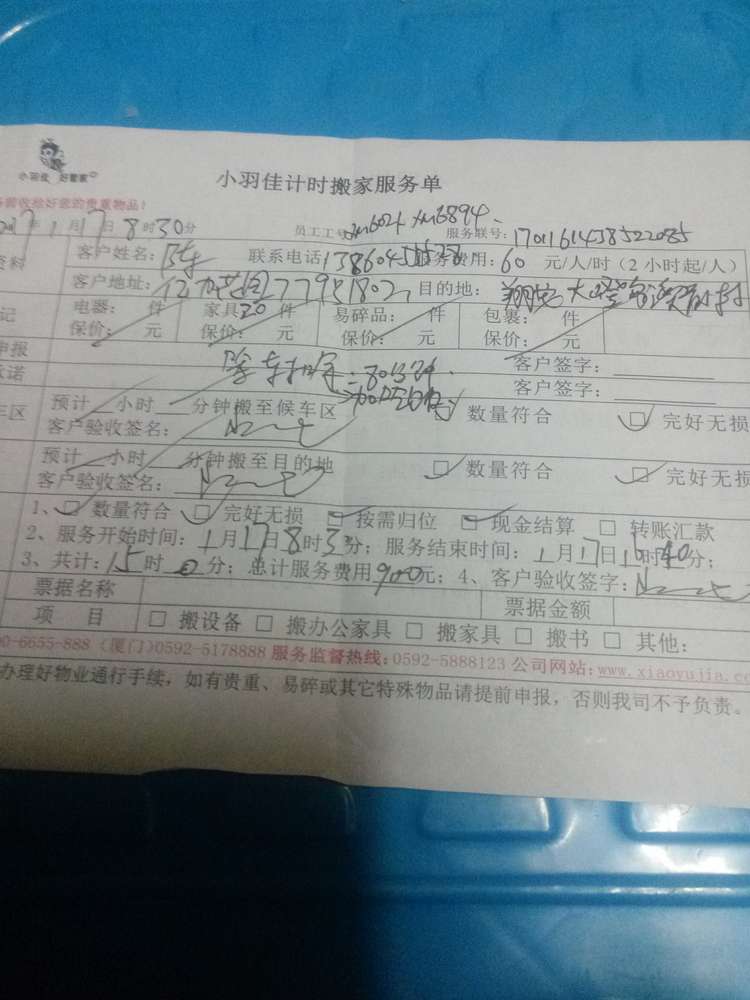 小羽佳 好管家
小羽佳计时搬家服务单
收拾好您的贵重物品！
2017年1月17日8时30分 员工工号 xm6024 xm6894 服务联号：1701161438522085
资料 客户姓名： 联系电话 服务费用：60 元/人/时（2小时起/人）
客户地址： 目的地：翔安大嶝
记 电器： 件 家具20件 易碎品： 件 包裹： 件
保价： 元 保价： 元 保价： 元 保价： 元
申报 客户签字：
承诺 客户签字：
车区 预计 小时 分钟搬至候车区 数量符合 完好无损
客户验收签名：
预计 小时 分钟搬至目的地 数量符合 完好无损
客户验收签名：
1、数量符合 完好无损 按需归位 现金结算 转账汇款
2、服务开始时间：1月17日8时 分；服务结束时间：1月17日16时40分；
3、共计：15时0分；总计服务费用900元；4、客户验收签字：
票据名称 票据金额
项 目 搬设备 搬办公家具 搬家具 搬书 其他：
00-6655-888（厦门）0592-5178888 服务监督热线：0592-5888123 公司网站：www.xiaoyujia.co
办理好物业通行手续，如有贵重、易碎或其它特殊物品请提前申报，否则我司不予负责。